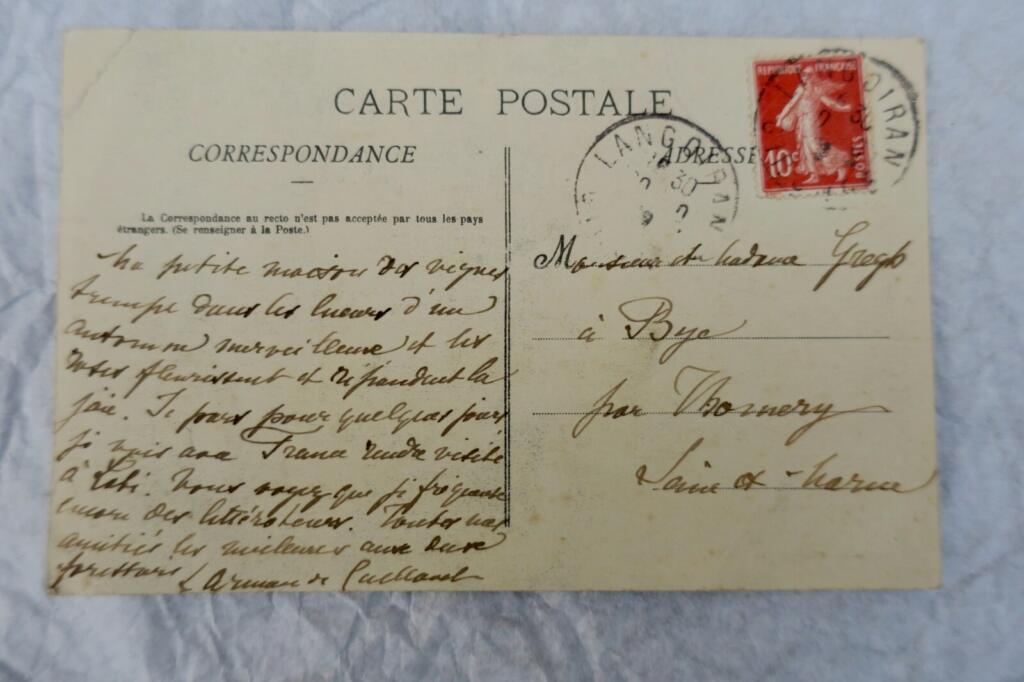 CARTE POSTALE
CORRESPONDANCE
ADRESSE
La Correspondance au recto n'est pas acceptée par tous les pays
étrangers. (Se renseigner à la Poste.)
REPUBLIQUE FRANÇAISE
10c POSTES
LANGOIRAN
LANGOIRAN
Ma petite maison des vignes
trempe dans les lueurs d'un
automne merveilleux et les
roses fleurissent et répandent la
joie. Je pars pour quelques jours
je vais avec France rendre visite
à Loti. Vous voyez que je fréquente
encore des littérateurs. Toutes nos
amitiés les meilleures aux deux
forestiers
Arman de Caillavet
Monsieur et Madame Gregh
à Bye
par Thomery
Seine et Marne